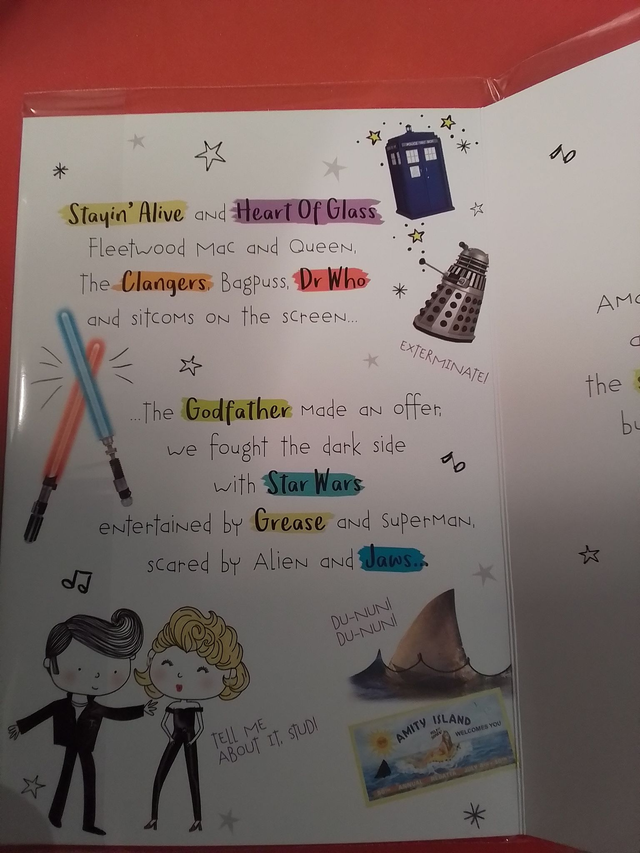 Stayin' Alive and Heart Of Glass
Fleetwood Mac and Queen,
The Clangers, Bagpuss, Dr Who
and sitcoms on the screen...
EXTERMINATE!
...The Godfather made an offer,
we fought the dark side
with Star Wars
entertained by Grease and Superman,
scared by Alien and Jaws...
DU-NUN!
DU-NUN!
TELL ME
ABOUT IT, STUD!
AMITY ISLAND
WELCOMES YOU
the